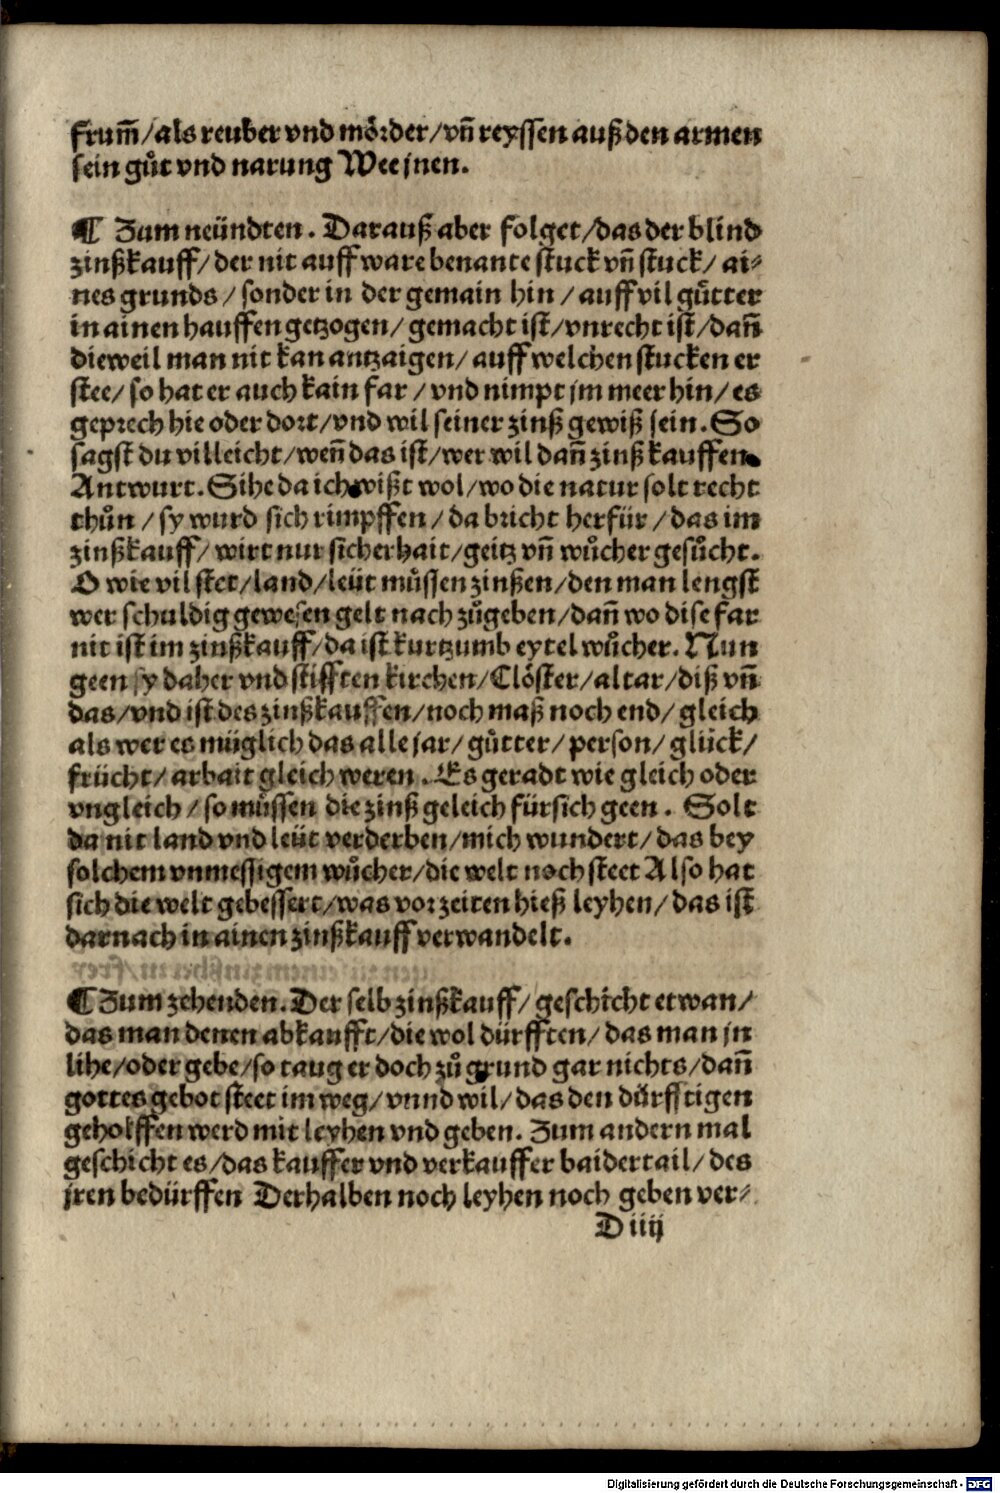 frum̃/als reuber vnd mörder/vñ reyssen auß den armen
sein gůt vnd narung Wee jnen.
¶ Zum neündten. Darauß aber folget/das der blind
zinßkauff/der nit auff ware benante stuck vñ stuck/ ai⸗
nes grunds/ sonder in der gemain hin/auff vil gůtter
in ainen hauffen getzogen/ gemacht ist/vnrecht ist/dañ
dieweil man nit kan antzaigen/ auff welchen stucken er
stee/ so hat er auch kain far/vnd nimpt jm meer hin/ es
geprech hie oder dort/vnd wil seiner zinß gewiß sein. So
sagst du villeicht/weñ das ist/wer wil dañ zinß kauffen.
Antwurt. Sihe da ich wißt wol/wo die natur solt recht
thůn/sy wurd sich rimpffen/da bricht herfür/das im
zinßkauff/wirt nur sicherhait/geitz vñ wůcher gesůcht.
O wie vil stet/land/leüt můssen zinßen/den man lengst
wer schuldig gewesen gelt nach zůgeben/dañ wo dise far
nit ist im zinßkauff/da ist kurtzumb eytel wůcher. Nun
geen sy daher vnd stifften kirchen/Clöster/altar/diß vñ
das/vnd ist des zinßkauffen/noch maß noch end/gleich
als wer es müglich das alle jar/gůtter/person/glück/
frücht/arbait gleich weren. Es geradt wie gleich oder
vngleich/so můssen die zinß geleich fürsich geen. Solt
da nit land vnd leüt verderben/mich wundert/das bey
solchem vnmessigem wůcher/die welt noch steet Also hat
sich die welt gebessert/was vor zeiten hieß leyhen/das ist
darnach in ainen zinßkauff verwandelt.
¶ Zum zehenden. Der selb zinßkauff/geschicht etwan/
das man denen abkaufft/die wol dürfften/das man jn
lihe/oder gebe/so taug er doch zů grund gar nichts/dañ
gottes gebot steet im weg/vnnd wil/das den dürfftigen
geholffen werd mit leyhen vnd geben. Zum andern mal
geschicht es/das kauffer vnd verkauffer baidertail/des
jren bedürffen Derhalben noch leyhen noch geben ver⸗
D iiij
Digitalisierung gefördert durch die Deutsche Forschungsgemeinschaft - DFG